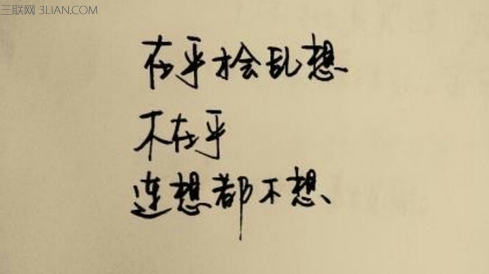 三联网 3LIAN.COM
在乎才会乱想
不在乎
连想都不想、